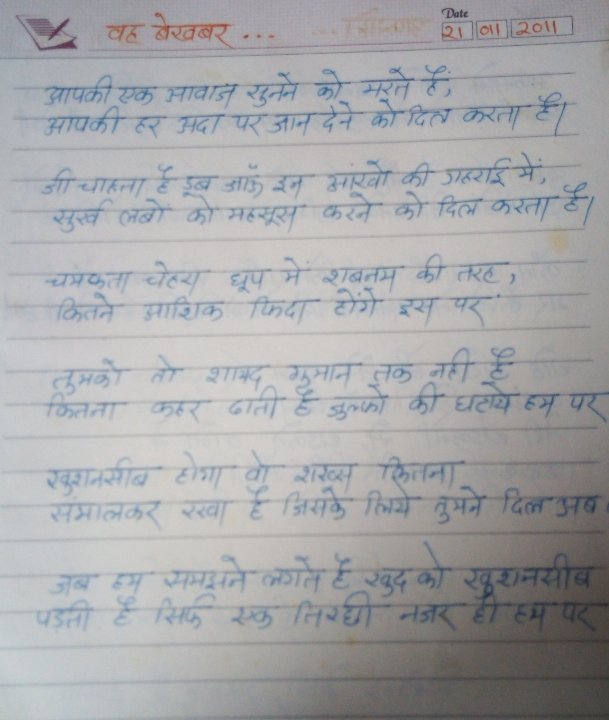 वह बेखबर ...
Date
21 01 2011
आपकी एक आवाज सुनने को मरते हैं,
आपकी हर अदा पर जान देने को दिल करता है।
जी चाहता है डूब जाऊँ इन आंखो की गहराई में,
सुर्ख लबों को महसूस करने को दिल करता है।
चमकता चेहरा धूप में शबनम की तरह,
कितने आशिक फिदा होंगे इस पर
तुमको तो शायद गुमान तक नही है
कितना कहर ढाती है जुल्फो की घटाये हम पर
खुशनसीब होगा वो शख्स कितना
संभालकर रखा है जिसके लिये तुमने दिल अब
जब हम समझने लगते है खुद को खुशनसीब
पड़ती है सिर्फ एक तिरछी नजर ही हम पर